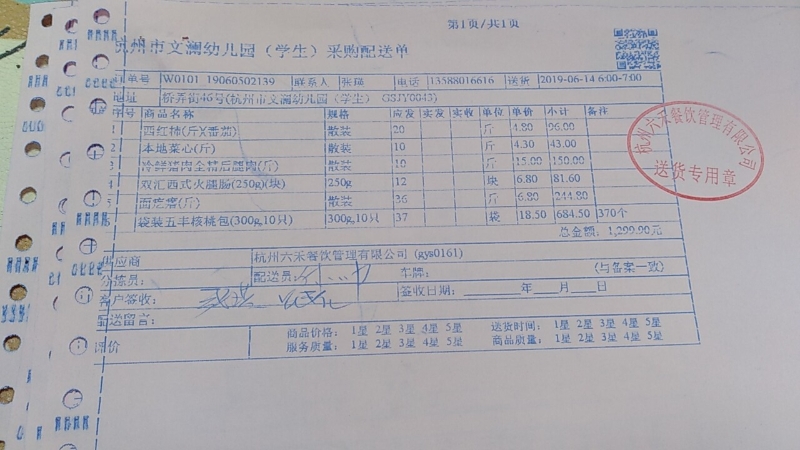 第1页/共1页
杭州市文澜幼儿园（学生）采购配送单
单号 W0101 19060502139 联系人 张瑛 电话 13588016616 送货 2019-06-14 6:00-7:00
地址 桥弄街46号(杭州市文澜幼儿园（学生） GSJY0043)
序号 商品名称 规格 应发 实发 实收 单位 单价 小计 备注
1 西红柿(斤)(番茄) 散装 20 斤 4.80 96.00
2 本地菜心(斤) 散装 10 斤 4.30 43.00
3 冷鲜猪肉全精后腿肉(斤) 散装 10 斤 15.00 150.00
4 双汇西式火腿肠(250g)(块) 250g 12 块 6.80 81.60
5 面疙瘩(斤) 散装 36 斤 6.80 244.80
袋装五丰核桃包(300g,10只) 300g,10只 37 袋 18.50 684.50 370个
总金额: 1,299.90元
供应商 杭州六禾餐饮管理有限公司 (gys0161)
分拣员: 配送员: 车牌: (与备案一致)
客户签收: 签收日期: 年 月 日
配送留言:
评价
商品价格: 1星 2星 3星 4星 5星 送货时间: 1星 2星 3星 4星 5星
服务质量: 1星 2星 3星 4星 5星 商品质量: 1星 2星 3星 4星 5星
杭州六禾餐饮管理有限公司
送货专用章